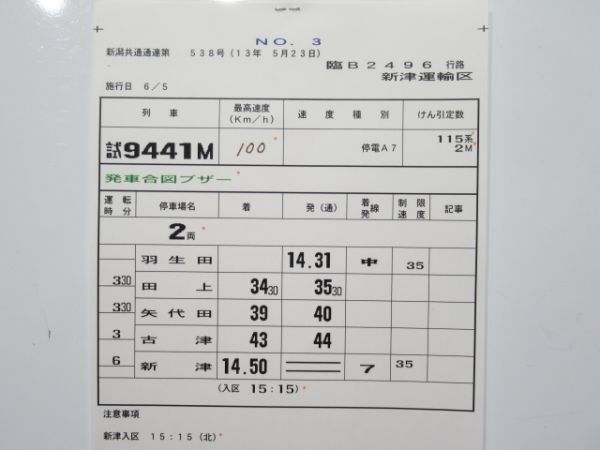 NO. 3
新潟共通通達第 538号(13年 5月23日)
臨B2496 行路
施行日 6/5
新津運輸区
列車 最高速度(Km/h) 速度種別 けん引定数
試9441M 100 停電A7 115系 2M
発車合図ブザー
運転時分 停車場名 着 発(通) 着発線 制限速度 記事
2両
羽生田 14.31 中 35
330 田上 3430 3530
330 矢代田 39 40
3 古津 43 44
6 新津 14.50 7 35
(入区 15:15)
注意事項
新津入区 15:15(北)